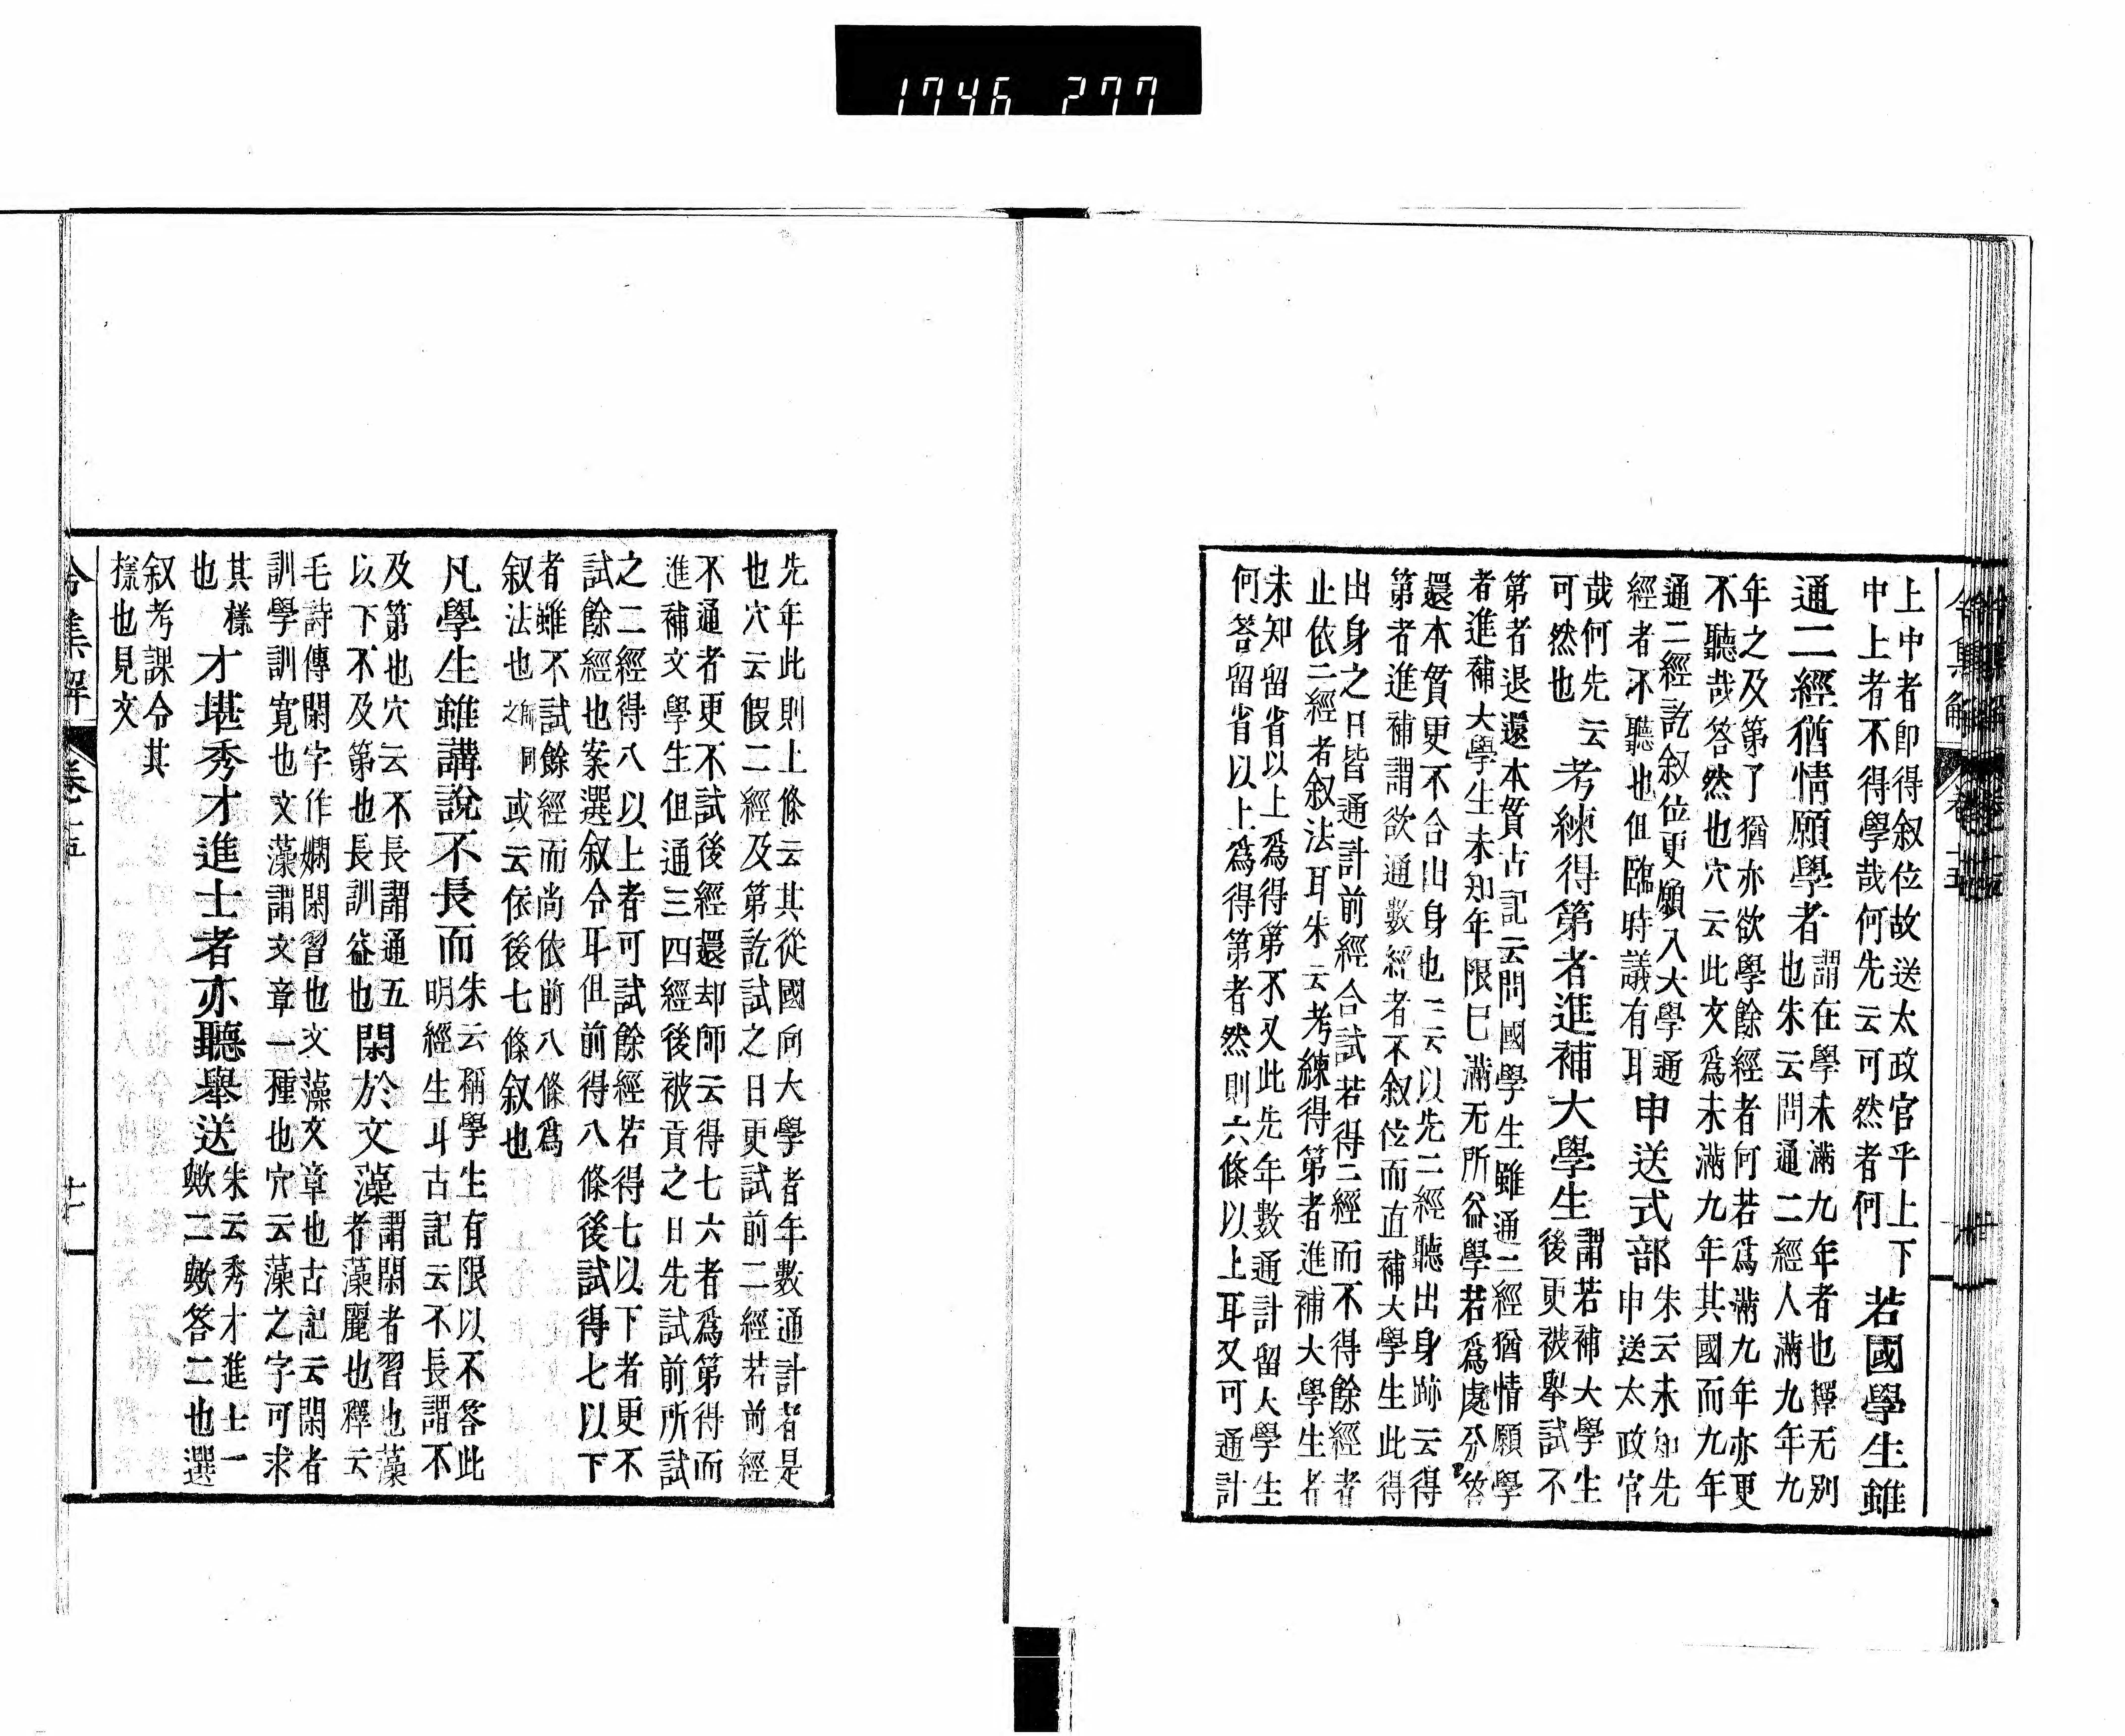 1746 277
令集解 卷十五
上中者卽得叙位故送太政官乎上下
中上者不得學哉何先云可然者何
若國學生雖
通二經猶情願學者
謂在學未滿九年者也釋无別
也朱云問通二經人滿九年九
年之及第了猶亦欲學餘經者何若爲滿九年亦更
不聽哉答然也穴云此文爲未滿九年其國而九年
通二經訖叙位更願入大學通
經者不聽也但臨時議有耳
申送式部
朱云未知先
申送太政官
哉何先云
可然也
考練得第者進補大學生
謂若補大學生
後更被擧試不
第者退還本貫古記云問國學生雖通二經猶情願學
者進補大學生未知年限已滿无所益學若爲處分答
還本貫更不合出身也一云以先二經聽出身跡云得
第者進補謂欲通數經者不叙位而直補大學生此得
出身之日皆通計前經合試若得二經而不得餘經者
止依二經者叙法耳朱云考練得第者進補大學生者
未知留省以上爲得第不又此先年數通計留大學生
何答留省以上爲得第者然則六條以上耳又可通計
先年此則上條云其從國向大學者年數通計者是
也穴云假二經及第訖試之日更試前二經若前經
不通者更不試後經還却師云得七六者爲第得而
進補文學生但通三四經後被貢之日先試前所試
之二經得八以上者可試餘經若得七以下者更不
試餘經也案選叙令耳但前得八條後試得七以下
者雖不試餘經而尚依前八條爲
叙法也
或云依後七條叙也
凡學生雖講說不長而
朱云稱學生有限以不答此
明經生耳古記云不長謂不
及第也穴云不長謂通五
以下不及第也長訓益也
閑於文藻
謂閑者習也藻
者藻麗也釋云
毛詩傳閑字作嫺閑習也文藻文章也古記云閑者
訓學訓寛也文藻謂文章一種也穴云藻之字可求
其樣
也
才堪秀才進士者亦聽擧送
朱云秀才進士一
歟二歟答二也選
叙考課令其
樣也見文
令集解 卷十五